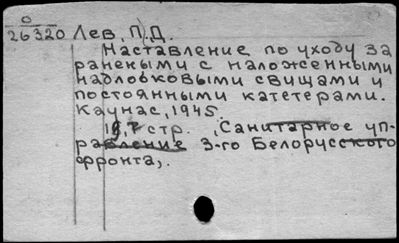 0
26320 Лев, П.Д.
Наставление по уходу за
ранеными с наложенными
надлобковыми свищами и
постоянными катетерами.
Каунас, 1945.
19,7 стр. (Санитарное уп-
равление 3-го Белорусского
фронта).